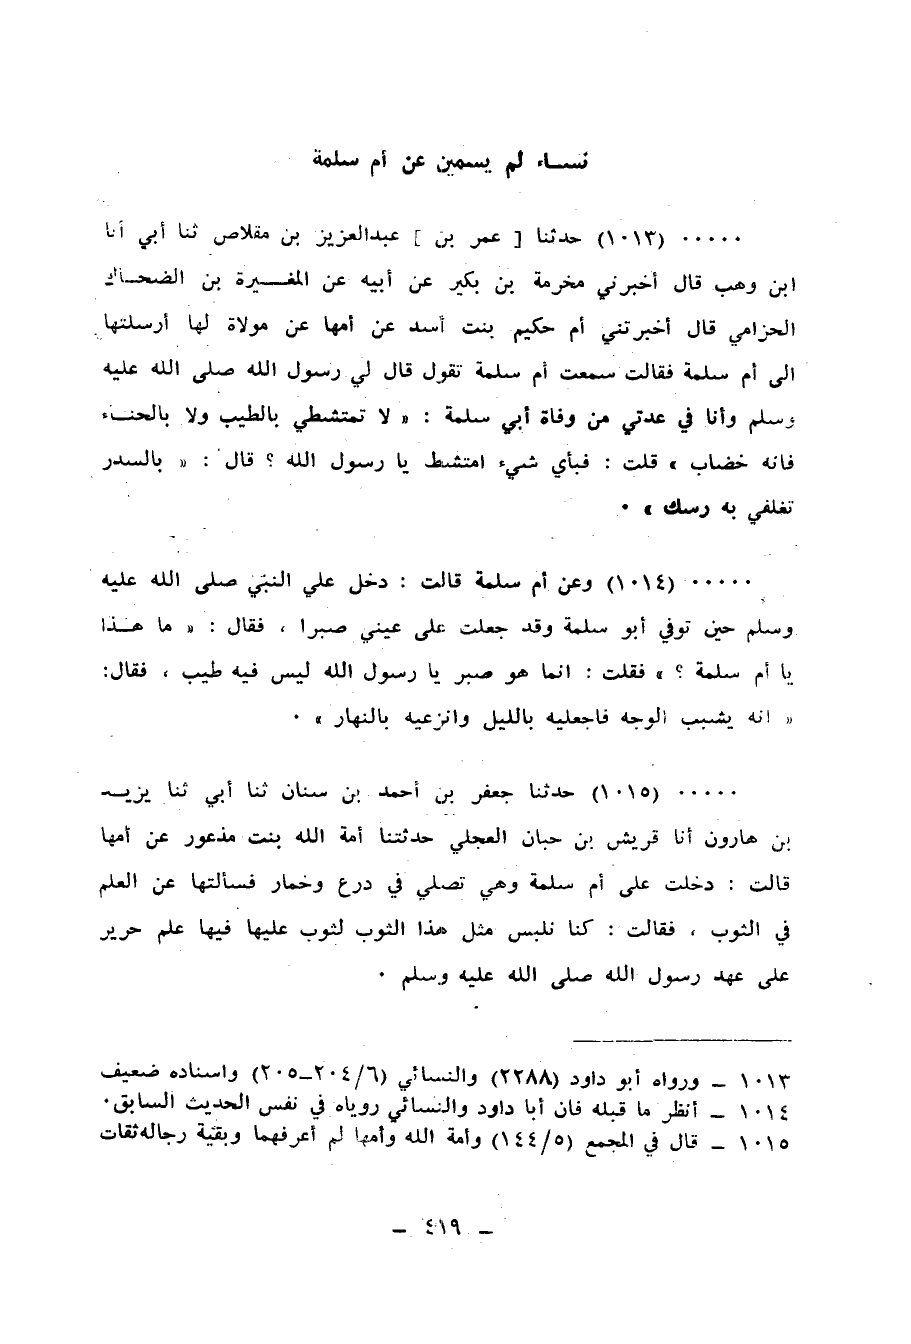 نساء لم يسمين عن أم سلمة
٠٠٠٠٠ (١٠١٣) حدثنا [ عمر بن ] عبدالعزيز بن مقلاص ثنا أبي أنا
ابن وهب قال أخبرني مخرمة بن بكير عن أبيه عن المغيرة بن الضحاك
الحزامي قال أخبرتني أم حكيم بنت أسد عن أمها عن مولاة لها أرسلتها
الى أم سلمة فقالت سمعت أم سلمة تقول قال لي رسول الله صلى الله عليه
وسلم وأنا في عدتي من وفاة أبي سلمة : « لا تمتشطي بالطيب ولا بالحناء
فانه خضاب » قلت : فبأي شيء امتشط يا رسول الله ؟ قال : « بالسدر
تغلفي به رسك » ٠
٠٠٠٠٠ (١٠١٤) وعن أم سلمة قالت : دخل علي النبي صلى الله عليه
وسلم حين توفي أبو سلمة وقد جعلت على عيني صبرا ، فقال : « ما هذا
يا أم سلمة ؟ » فقلت : انما هو صبر يا رسول الله ليس فيه طيب ، فقال:
« انه يشبب الوجه فاجعليه بالليل وانزعيه بالنهار » ٠
٠٠٠٠٠ (١٠١٥) حدثنا جعفر بن أحمد بن سنان ثنا أبي ثنا يزيد
بن هارون أنا قريش بن حبان العجلي حدثتنا أمة الله بنت مذعور عن أمها
قالت : دخلت على أم سلمة وهي تصلي في درع وخمار فسألتها عن العلم
في الثوب ، فقالت : كنا نلبس مثل هذا الثوب لثوب عليها فيها علم حرير
على عهد رسول الله صلى الله عليه وسلم ٠
١٠١٣ ــ ورواه أبو داود (٢٢٨٨) والنسائي (٢٠٤/٦ــ٢٠٥) واسناده ضعيف
١٠١٤ ــ أنظر ما قبله فان أبا داود والنسائي روياه في نفس الحديث السابق٠
١٠١٥ ــ قال في المجمع (١٤٤/٥) وأمة الله وأمها لم أعرفهما وبقية رجاله ثقات
ــ ٤١٩ ــ